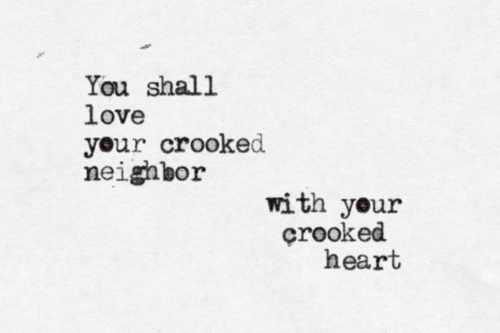 You shall
love
your crooked
neighbor
with your
crooked
heart